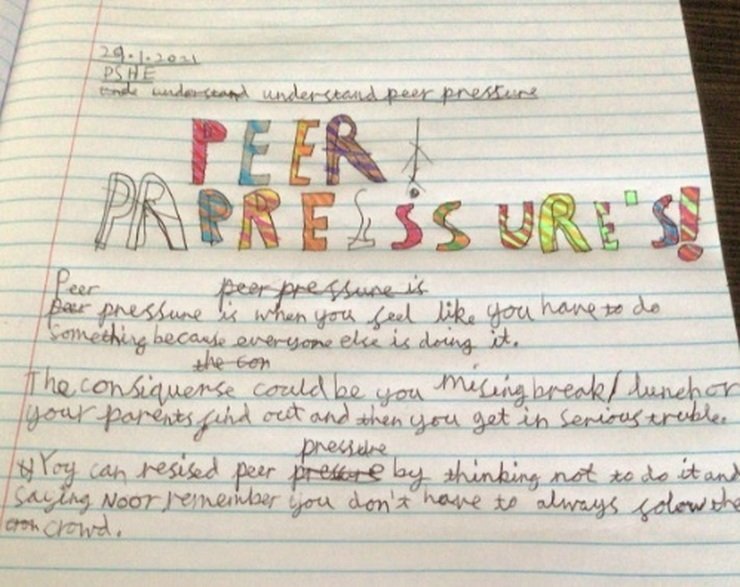 29.1.2021
PSHE
understand understand peer pressure
PEER!
PR PRESSURE'S!
Peer peer pressure is
peer pressure is when you feel like you have to do
something because everyone else is doing it.
the con
The consiquense could be you misingbreak/lunch or
your parents find out and then you get in serious truble.
pressure
You can resised peer pressure by thinking not to do it and
saying NOOr remember you don't have to always folow the
crowd.